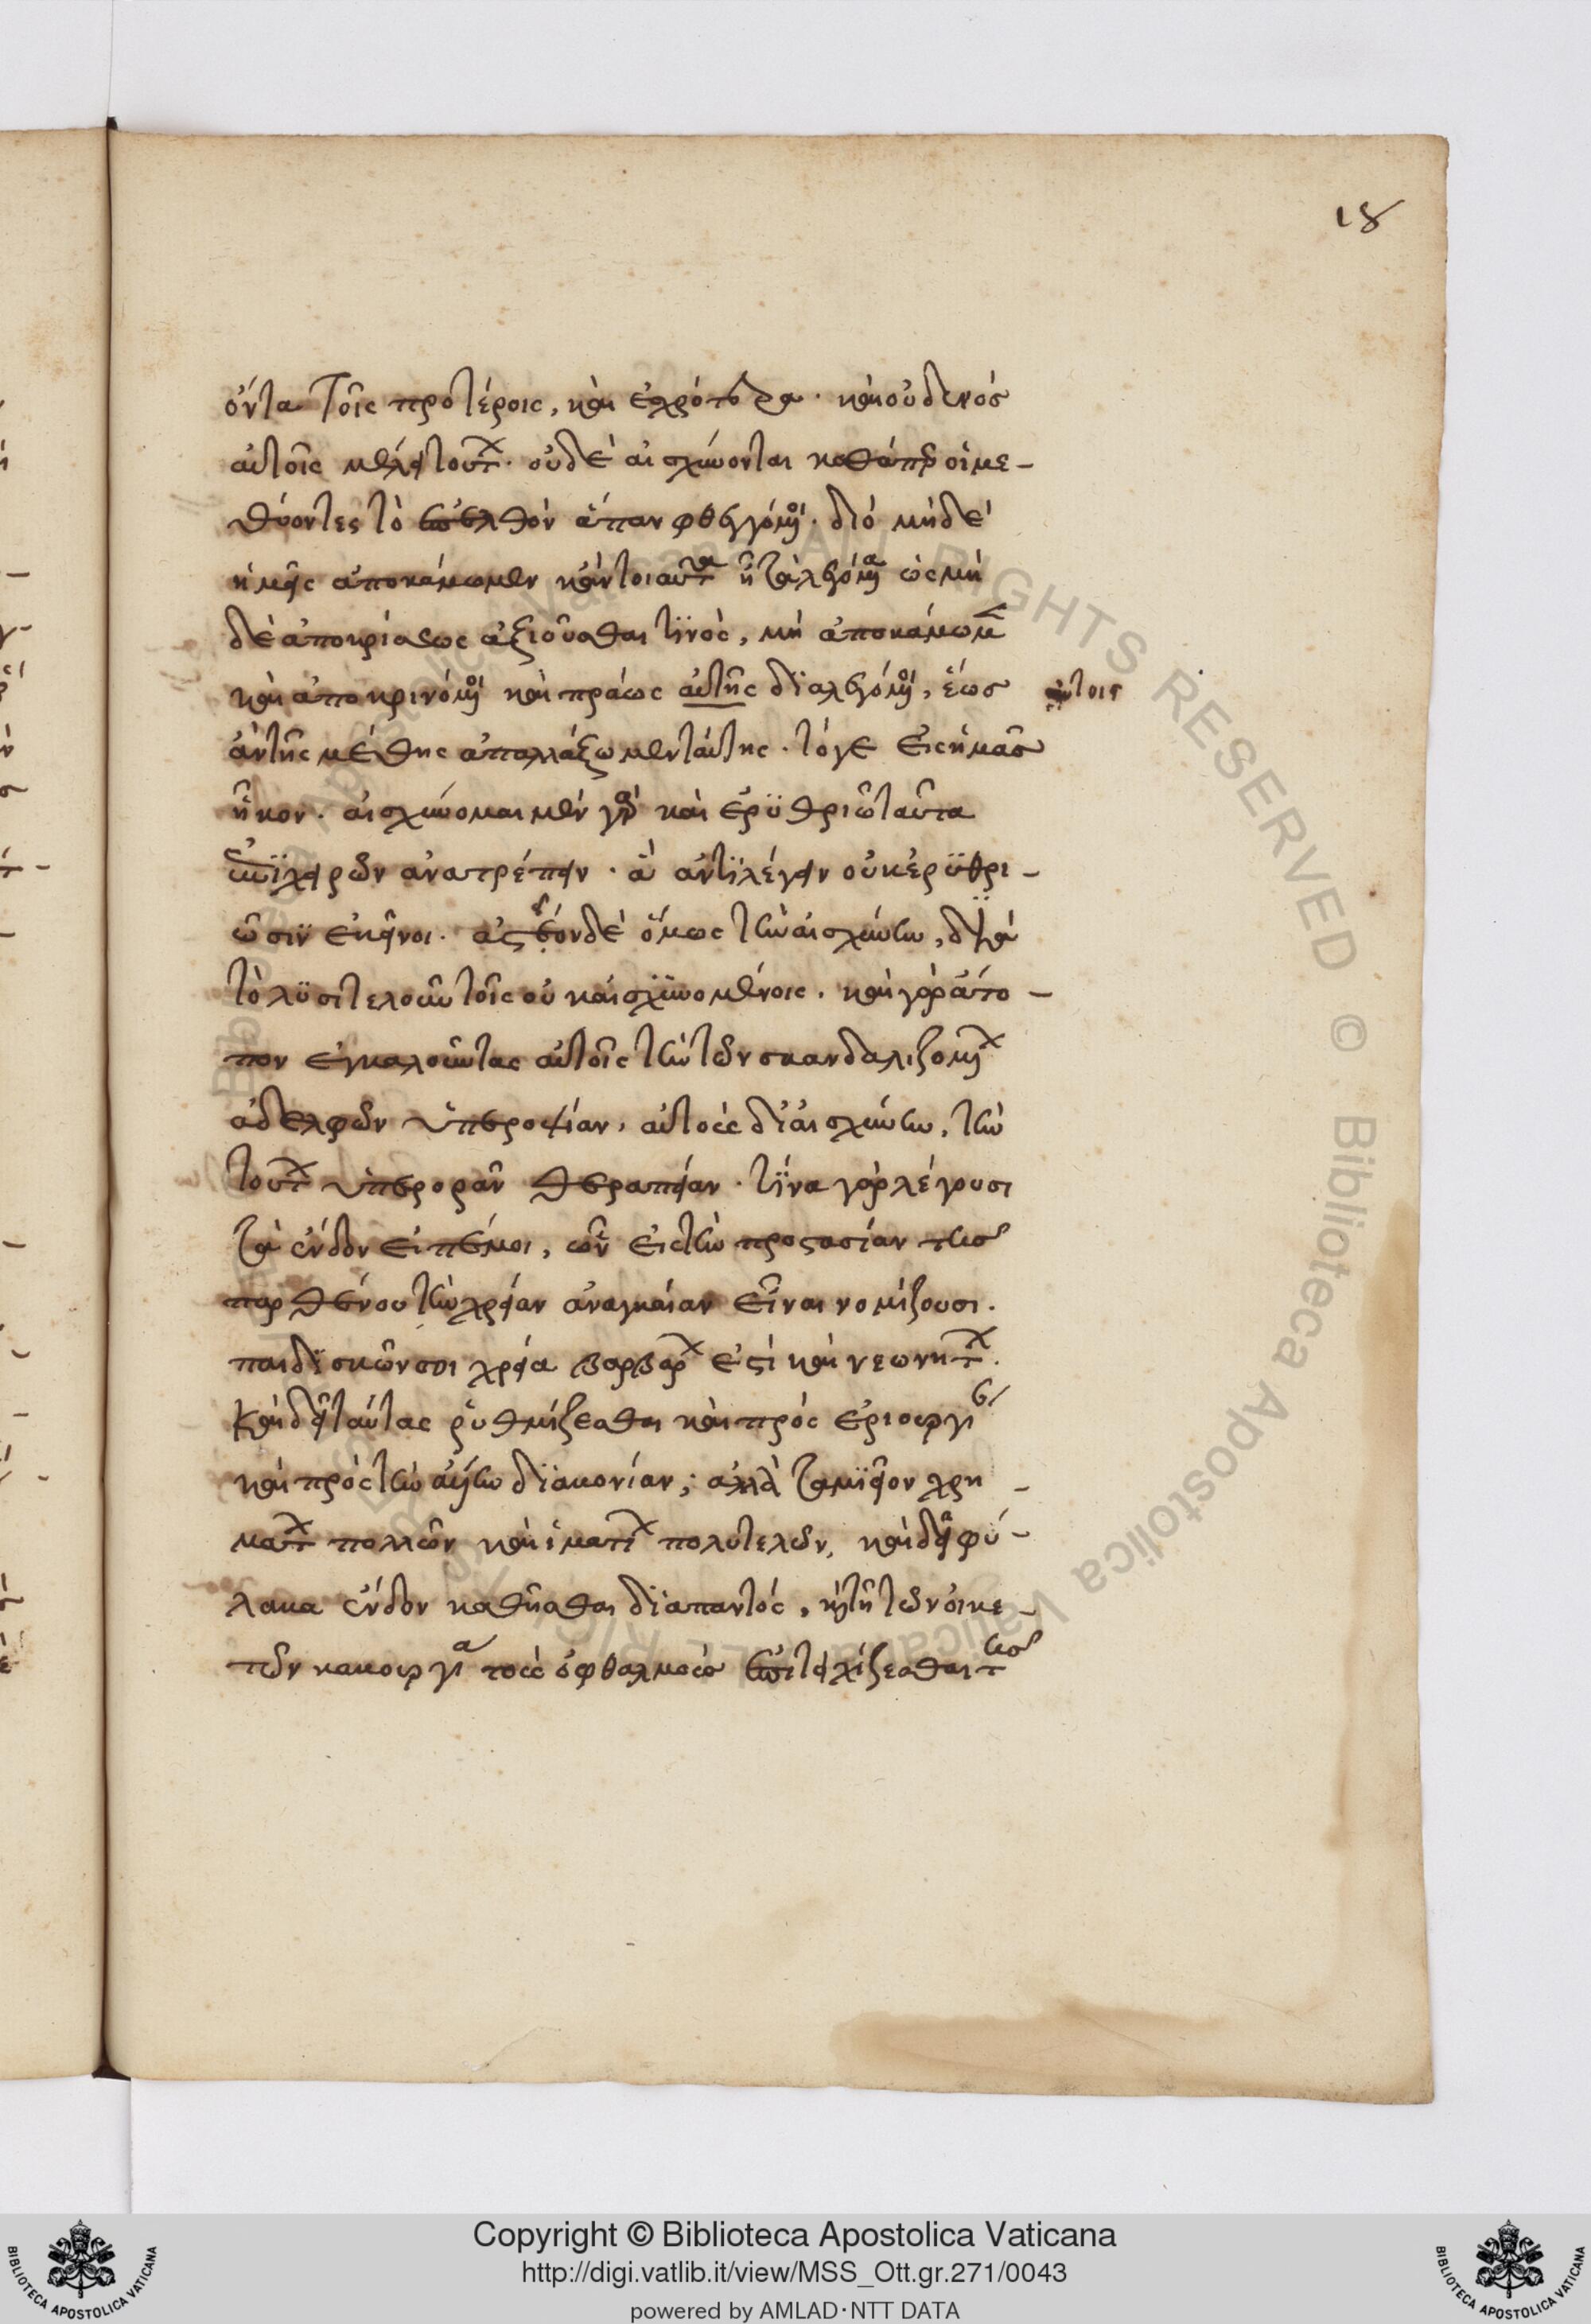 18
ὄντα τοῖς προτέροις, καὶ ἐχρότερα. καὶ οὐδενός
αὐτοῖς μέλει τούτων. οὐδὲ αἰσχύνονται καθάπερ οἱ με-
θύοντες τὸ ἐπελθὸν ἅπαν φθεγγόμενοι. διό μηδὲ
ἡμεῖς ἀποκάμωμεν κἂν τοιαῦτα ἦ τὰ λεγόμενα ὡς μη
δὲ ἀποκρίσεως ἀξιοῦσθαι τινὸς, μὴ ἀποκάμωμεν
καὶ ἀποκρινόμενοι καὶ πράως αὐτῆς διαλεγόμενοι, ἕως
αὐτοῖς
ἂν τῆς μέθης ἀπαλλάξωμεν ταύτης. τό γε εἰς ἡμᾶς
ἧκον. αἰσχύνομαι μὲν γὰρ καὶ ἐρυθριῶ ταῦτα
ἐπιχειρῶν ἀνατρέπειν. ἃ ἀντιλέγειν οὐκ ἐρυθρι-
ῶσιν ἐκεῖνοι. οἰστέον δὲ ὅμως τὴν αἰσχύνην, διὰ
τὸ λυσιτελοῦν τοῖς οὐκ αἰσχυνομένοις. καὶ γὰρ ἄτο-
πον ἐγκαλοῦντας αὐτοῖς τὴν τῶν σκανδαλιζομένων
ἀδελφῶν ὑπεροψίαν, αὐτοὺς δι' αἰσχύνην, τὴν
τούτων ὑπερορᾶν θεραπείαν. τίνα γὰρ λέγουσι
τὰ ἔνδον εἰπέ μοι, ὧν εἰς τὴν προστασίαν τῆς
παρθένου τὴν χρείαν ἀναγκαίαν εἶναι νομίζουσι.
παιδισκῶν σοι χρεία βαρβάρων ἐστὶ καὶ νεωνήτων.
Καὶ δεῖ ταύτας ῥυθμίζεσθαι καὶ πρὸς ἐριουργίαν
καὶ πρὸς τὴν ἄλλην διακονίαν; ἀλλὰ ταμιεῖον χρη-
μάτων πολλῶν καὶ ἱματίων πολυτελῶν, καὶ δεῖ φύ-
λακα ἔνδον καθῆσθαι διαπαντός, καὶ τῇ τῶν οἰκε-
τῶν κακουργία τοὺς ὀφθαλμοὺς ἐπιτειχίζεσθαι τῆς
Copyright © Biblioteca Apostolica Vaticana
http://digi.vatlib.it/view/MSS_Ott.gr.271/0043
powered by AMLAD·NTT DATA